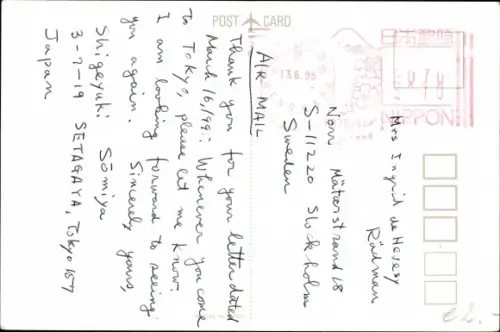 POST CARD
AIR MAIL
Thank you for your letter dated
March 16, 199 . Whenever you come
to Tokyo, please let me know.
I am looking forward to seeing
you again.
Sincerely yours,
Shigeyuki Sōmiya
3-7-19 SETAGAYA, Tokyo 157
Japan
Mrs Ingrid de Hevesy
Rådman
Norr Mälarstrand 18
S-11220 Stockholm
Sweden
13.6.95
日本郵便
NIPPON
€ 2.